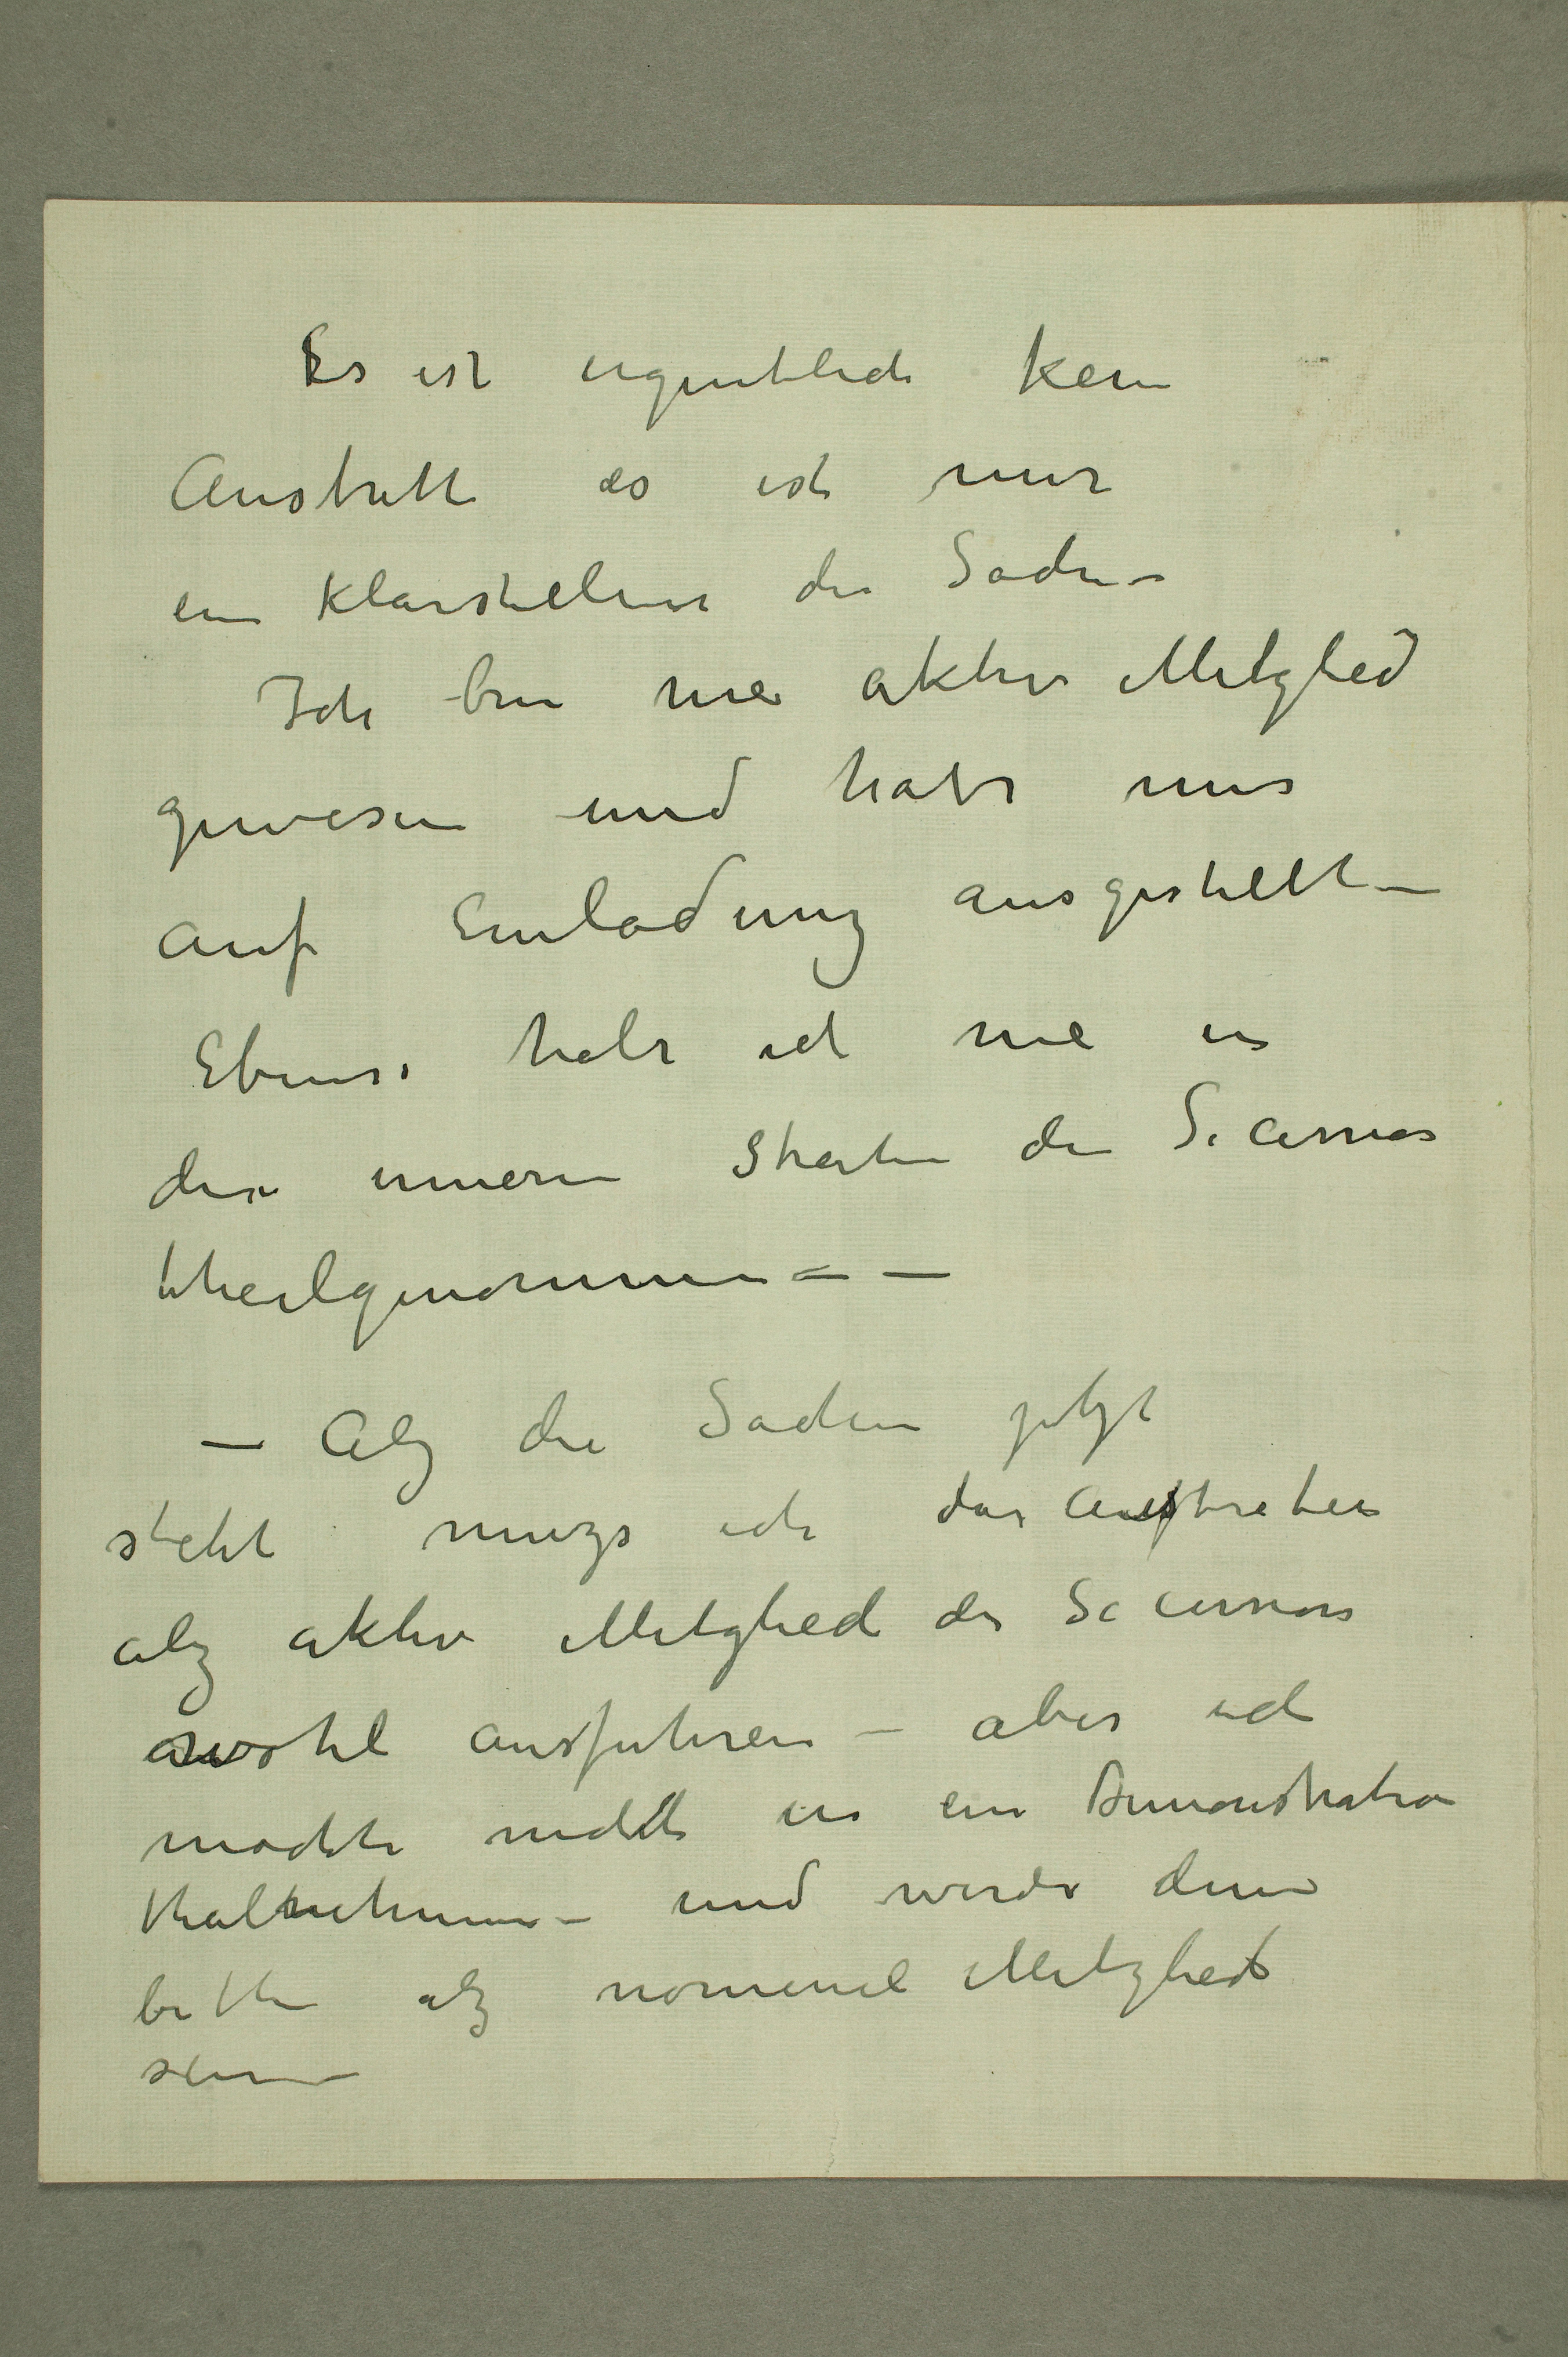 Es ist eigentlich kein
Austritt es ist nur
ein Klarstellen der Sachen
Ich bin nie aktiv Mitglied
gewesen und habe nur
auf Einladung ausgestellt –
Ebenso habe ich nie in
den inneren Streiten der Secession
theilgenommen – –
– Alz die Sachen jetzt
steht muzs ich das Austreten
alz aktiv Mitglied der Secession
wohl ausführen – aber ich
möchte nicht in eine Demonstration
theilnehmen – und werde denn
bitte alz nominel Mitglied
sein –